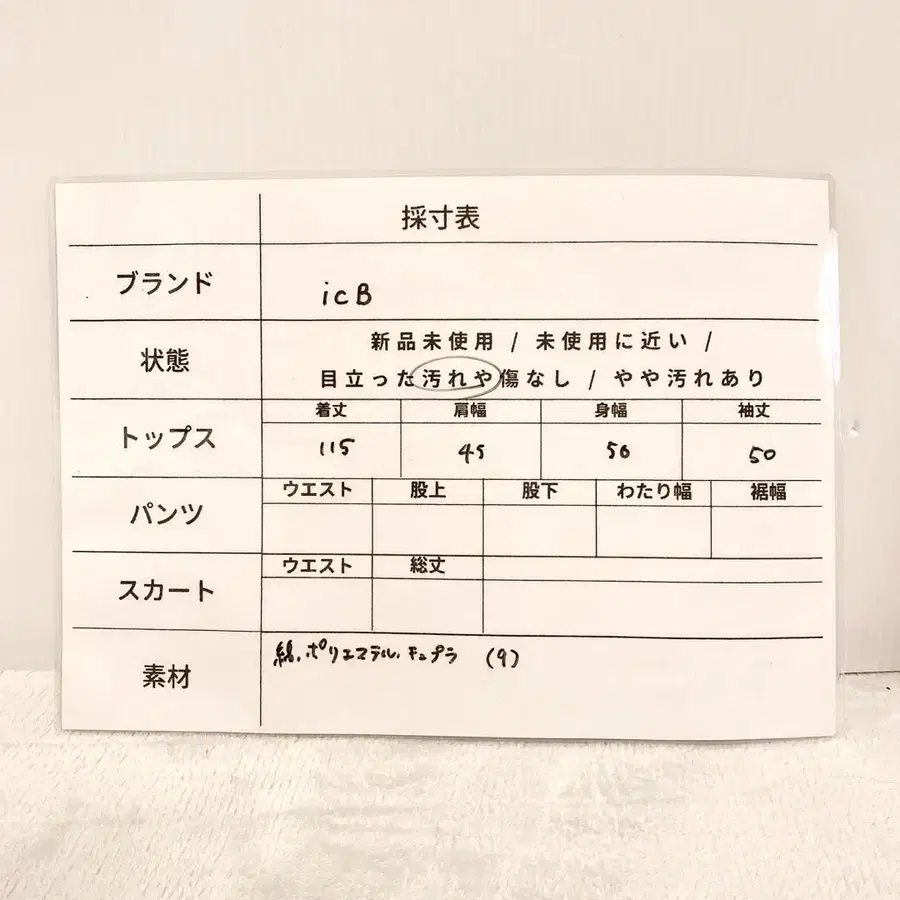 採寸表
ブランド icB
状態 新品未使用 / 未使用に近い /
目立った汚れや傷なし / やや汚れあり
トップス 着丈 肩幅 身幅 袖丈
115 45 56 50
パンツ ウエスト 股上 股下 わたり幅 裾幅
スカート ウエスト 総丈
素材 綿.ポリエステル.キュプラ (9)